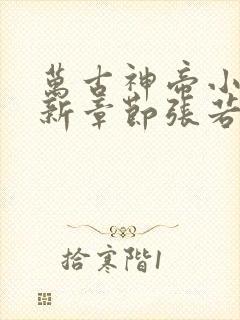 萬古神帝小
新章節張若
拾寒階1